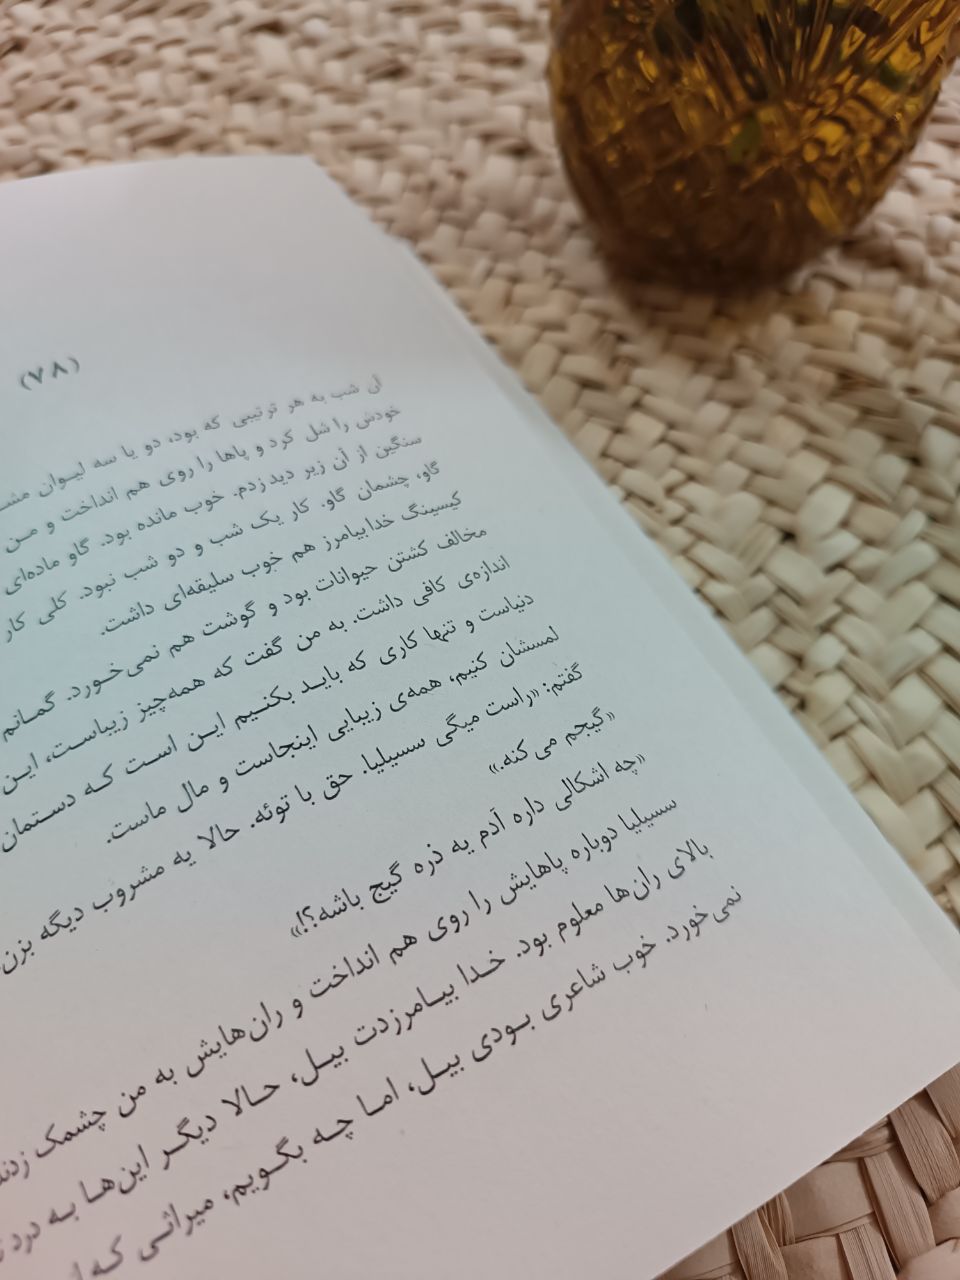 (۷۸)
آن شب به هر ترتیبی که بود، دو یا سه لیوان
خودش را شل کرد و پاها را روی هم انداخت و من
سنگین از آن زیر دید زدم. خوب مانده بود. گاو ماده‌ای
گاو، چشمان گاو. کار یک شب و دو شب نبود. کلی کار
کیسینگ خدابیامرز هم خوب سلیقه‌ای داشت.
مخالف کشتن حیوانات بود و گوشت هم نمی‌خورد. گمانم
اندازه‌ی کافی داشت. به من گفت که همه‌چیز زیباست، این
دنیاست و تنها کاری که باید بکنیم این است که دستمان
لمسشان کنیم، همه‌ی زیبایی اینجاست و مال ماست.
گفتم: «راست میگی سسیلیا. حق با توئه. حالا یه مشروب دیگه بزن
«گیجم می‌کنه.»
«چه اشکالی داره آدم یه ذره گیج باشه؟!»
سسیلیا دوباره پاهایش را روی هم انداخت و ران‌هایش به من چشمک زدند
بالای ران‌ها معلوم بود. خدا بیامرزدت بیل، حالا دیگر این‌ها به درد
نمی‌خورد. خوب شاعری بودی بیل، اما چه بگویم، میراثی که